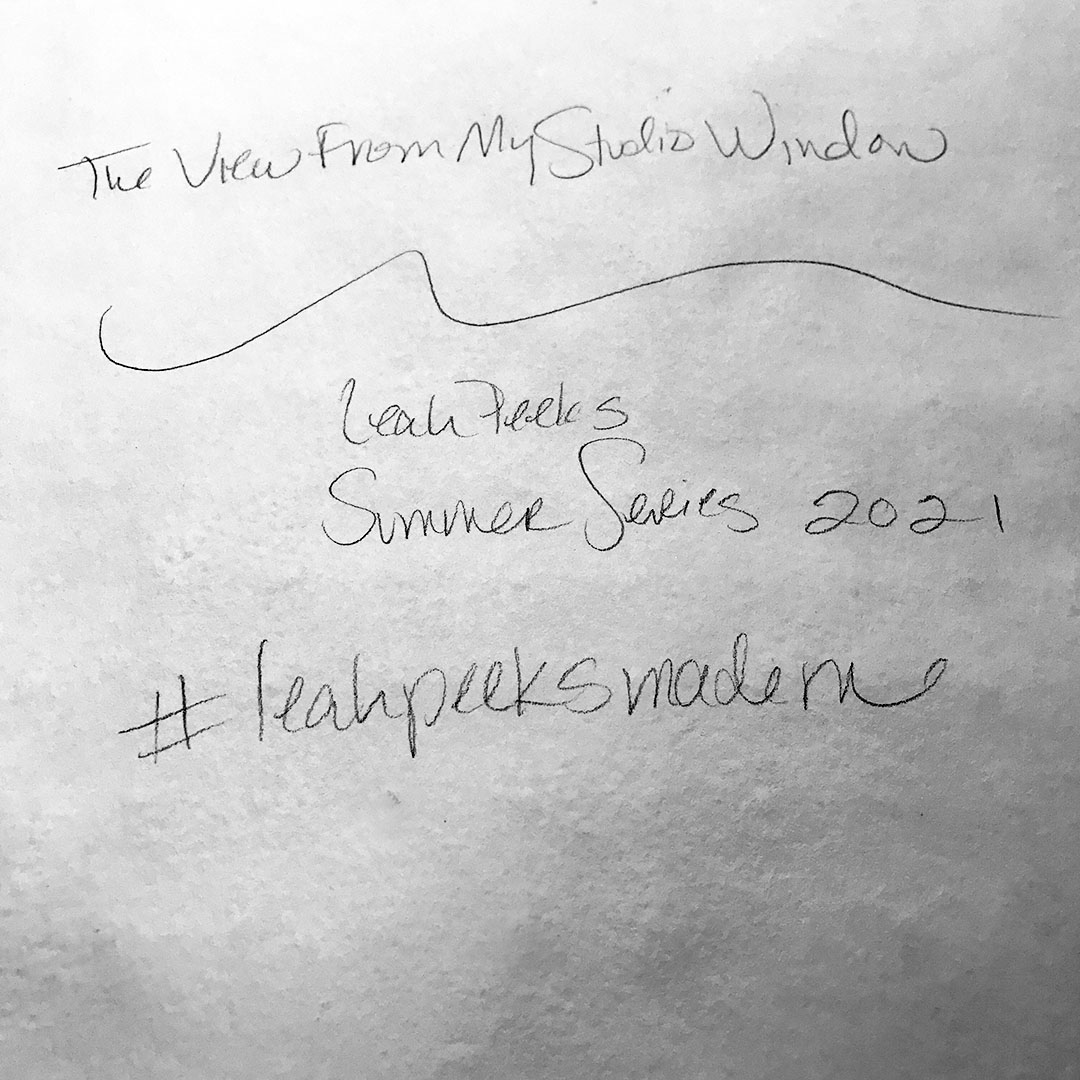 The View From My Studio Window
Leah Peeks
Summer Series 2021
#leahpeeksmademe